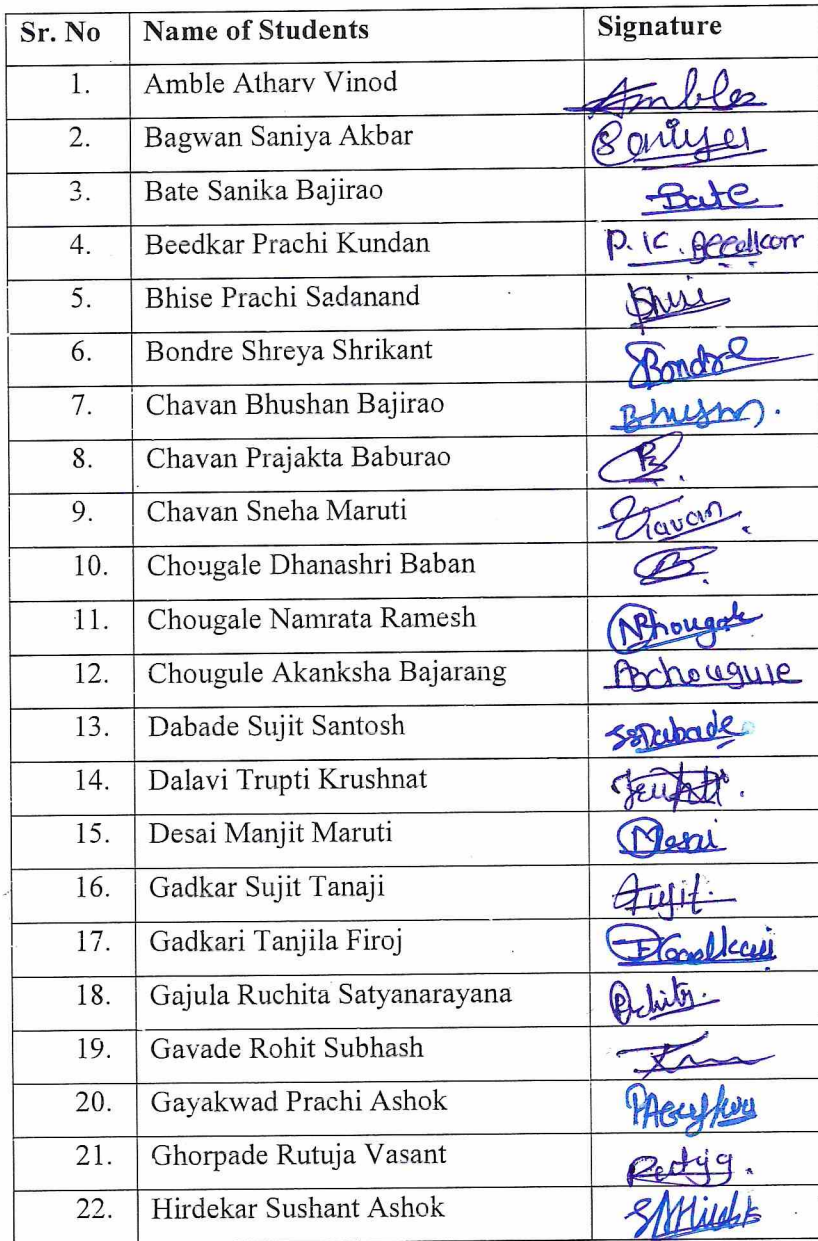 Sr. No Name of Students Signature
1. Amble Atharv Vinod Amble
2. Bagwan Saniya Akbar Saniya
3. Bate Sanika Bajirao Bate
4. Beedkar Prachi Kundan P. K. Beedkar
5. Bhise Prachi Sadanand
6. Bondre Shreya Shrikant SBondre
7. Chavan Bhushan Bajirao
8. Chavan Prajakta Baburao
9. Chavan Sneha Maruti
10. Chougale Dhanashri Baban
11. Chougale Namrata Ramesh
12. Chougule Akanksha Bajarang ABchougule
13. Dabade Sujit Santosh SSDabade
14. Dalavi Trupti Krushnat
15. Desai Manjit Maruti
16. Gadkar Sujit Tanaji Sujit.
17. Gadkari Tanjila Firoj
18. Gajula Ruchita Satyanarayana
19. Gavade Rohit Subhash
20. Gayakwad Prachi Ashok
21. Ghorpade Rutuja Vasant
22. Hirdekar Sushant Ashok